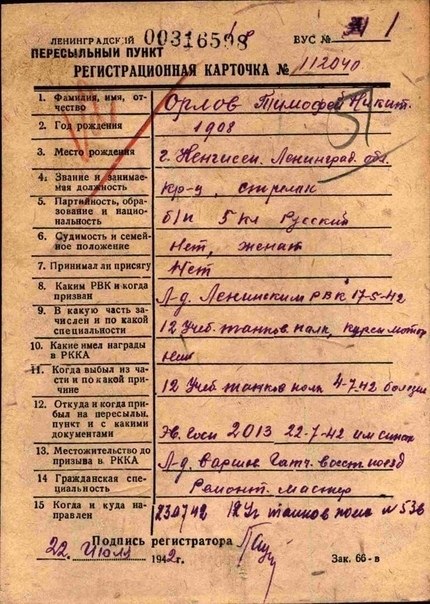 ЛЕНИНГРАДСКИЙ 00316598 ВУС № 1
ПЕРЕСЫЛЬНЫЙ ПУНКТ
РЕГИСТРАЦИОННАЯ КАРТОЧКА № 112040
1. Фамилия, имя, от-
чество Орлов Тимофей Никит.
2. Год рождения 1908
3. Место рождения г. Ленинград. обл.
4. Звание и занимае-
мая должность кр-ц, стрелок
5. Партийность, обра-
зование и нацио-
нальность б/п 5 кл Русский
6. Судимость и семей-
ное положение Нет, женат
7. Принимал ли присягу Нет
8. Каким РВК и когда
призван Л-д. Ленинским РВК 17-5-42
9. В какую часть за-
числен и по какой
специальности 12 Учеб. танков полк, курсы мотор
10. Какие имел награды
в РККА Нет
11. Когда выбыл из ча-
сти и по какой при-
чине 12 Учеб танков полк 4-7-42
12. Откуда и когда при-
был на пересыльн.
пункт и с какими
документами Эв. госп 2013 22-7-42
13. Местожительство до
призыва в РККА Л-д.
14. Гражданская спе-
циальность Ремонт. мастер
15 Когда и куда на-
правлен 230742 12 Уч танков полк № 536
Подпись регистратора
22. Июля 1942 г. Зак. 66-в